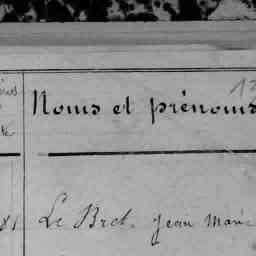 Noms et prénoms
Le Bret, Jean Marie